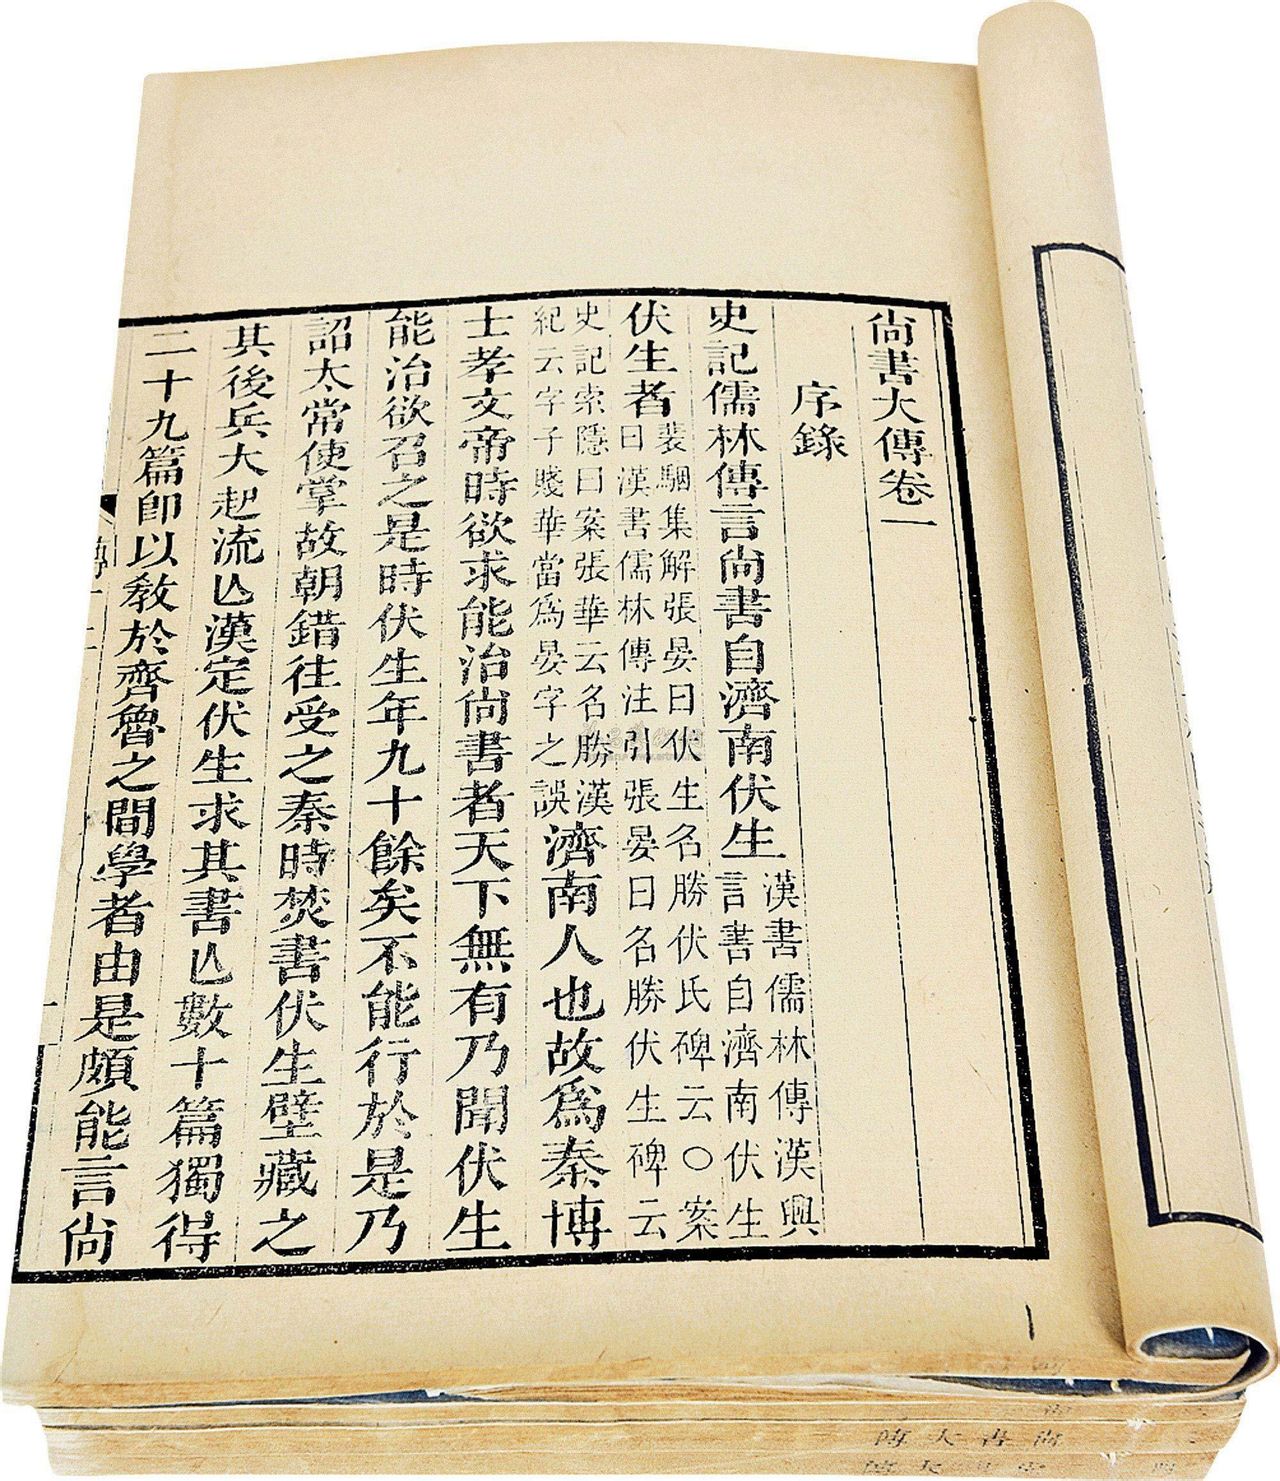 尚書大傳卷一
序錄
史記儒林傳言尚書自濟南伏生漢書儒林傳漢興言書自濟南伏生
伏生者裴駰集解張晏曰伏生名勝伏氏碑云○案曰漢書儒林傳注引張晏曰名勝伏生碑云
史記索隱曰案張華云名勝漢紀云字子賤華當爲晏字之誤濟南人也故爲秦博
士孝文帝時欲求能治尚書者天下無有乃聞伏生
能治欲召之是時伏生年九十餘矣不能行於是乃
詔太常使掌故朝錯往受之秦時焚書伏生壁藏之
其後兵大起流亾漢定伏生求其書亾數十篇獨得
二十九篇卽以敎於齊魯之間學者由是頗能言尚
尚書大傳